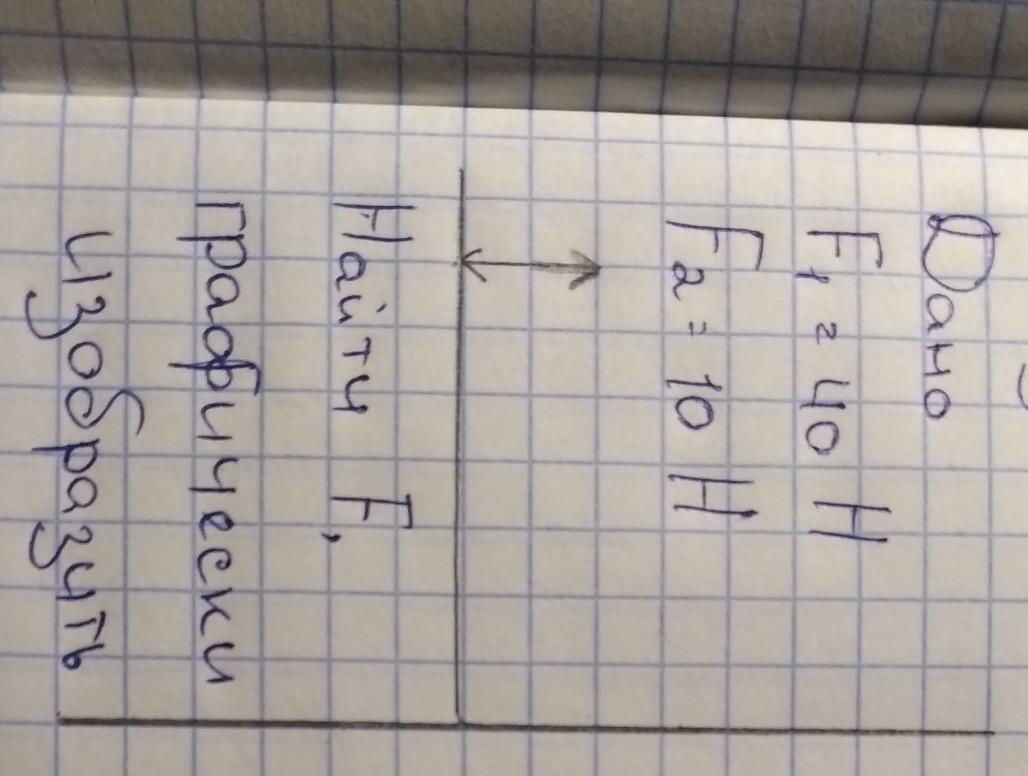 Дано
F₁ = 40 Н
F₂ = 10 Н
Найти F,
графически
изобразить